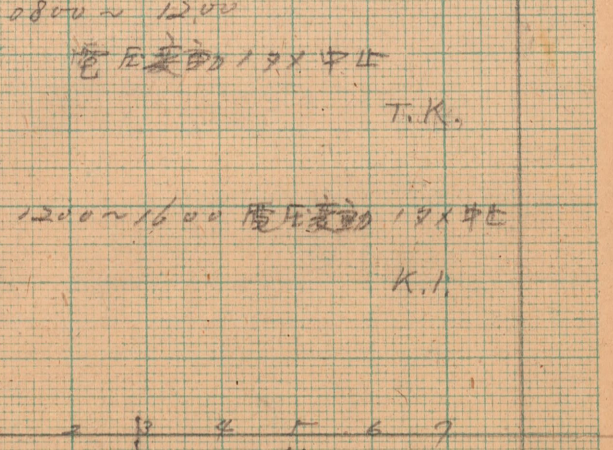 0800~1200
電圧変動ノタメ中止
T.K.
1200~1600 電圧変動ノタメ中止
K.I.
2 3 4 5 6 7